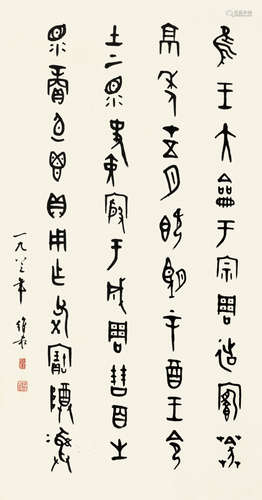 隹王大龠于宗周造館葊
京年五月既望辛酉王令
士上眔史寅殷于成周百生
眔賞卣鬯貝用乍父寶尊彝
一九八三年